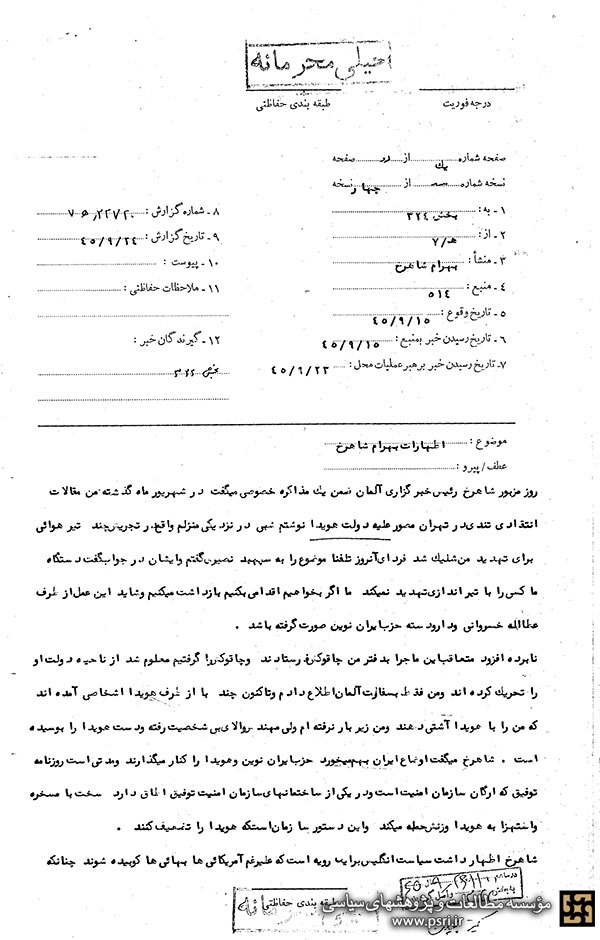 خیلی محرمانه
درجه فوریت
طبقه بندی حفاظتی
صفحه شماره یک از دو صفحه
نسخه شماره سه از چهار نسخه
۱ـ به : بخش ۳۲۴
۲ـ از : هـ/۷
۳ـ منشأ : بهرام شاهرخ
۴ـ منبع : ۵۱۴
۵ـ تاریخ وقوع : ۴۵/۹/۱۵
۶ـ تاریخ رسیدن خبر بمنبع : ۴۵/۹/۱۵
۷ـ تاریخ رسیدن خبر برهبر عملیات محل : ۴۵/۹/۲۳
۸ـ شماره گزارش :
۹ـ تاریخ گزارش : ۴۵/۹/۲۴
۱۰ـ پیوست :
۱۱ـ ملاحظات حفاظتی :
۱۲ـ گیرندگان خبر :
بخش ۳۲۲
موضوع : اظهارات بهرام شاهرخ
عطف/پیرو :
روز مزبور شاهرخ رئیس خبرگزاری آلمان ضمن یک مذاکره خصوصی میگفت در شهریور ماه گذشته من مقالات
انتقادی تندی در تهران مصور علیه دولت هویدا نوشتم شبی در نزدیکی منزلم واقع در تجریش چند تیر هوائی
برای تهدید من شلیک شد فردای آنروز تلفنا موضوع را به سپهبد نصیری گفتم وایشان در جواب گفت دستگاه
ما کسی را با تیراندازی تهدید نمیکند ما اگر بخواهیم اقدامی بکنیم بازداشت میکنیم وشاید این عمل از طرف
عطاالله خسروانی ودارودسته حزب ایران نوین صورت گرفته باشد .
نابرده افزود متعاقب این ماجرا بدفتر من چاقوکش فرستادند وچاقوکش را گرفتیم معلوم شد از ناحیه دولت او
را تحریک کرده اند ومن فقط بسفارت آلمان اطلاع دادم وتاکنون چند بار از طرف هویدا اشخاصی آمده اند
که من را با هویدا آشتی دهند ومن زیر بار نرفته ام ولی مهندس والا بی شخصیت رفته ودست هویدا را بوسیده
است . شاهرخ میگفت اوضاع ایران بهم میخورد حزب ایران نوین وهویدا را کنار میگذارند ومدتی است روزنامه
توفیق که ارگان سازمان امنیت است ودر یکی از ساختمانهای سازمان امنیت توفیق اطاق دارد سخت با مسخره
واستهزا به هویدا وزنش حمله میکند واین دستور سازمان استکه هویدا را تضعیف کنند .
شاهرخ اظهار داشت سیاست انگلیس براین رویه است که علیرغم آمریکائی ها بهائی ها کوبیده شوند چنانکه
طبقه بندی حفاظتی
مؤسسه مطالعات و پژوهشهای سیاسی
www.psri.ir